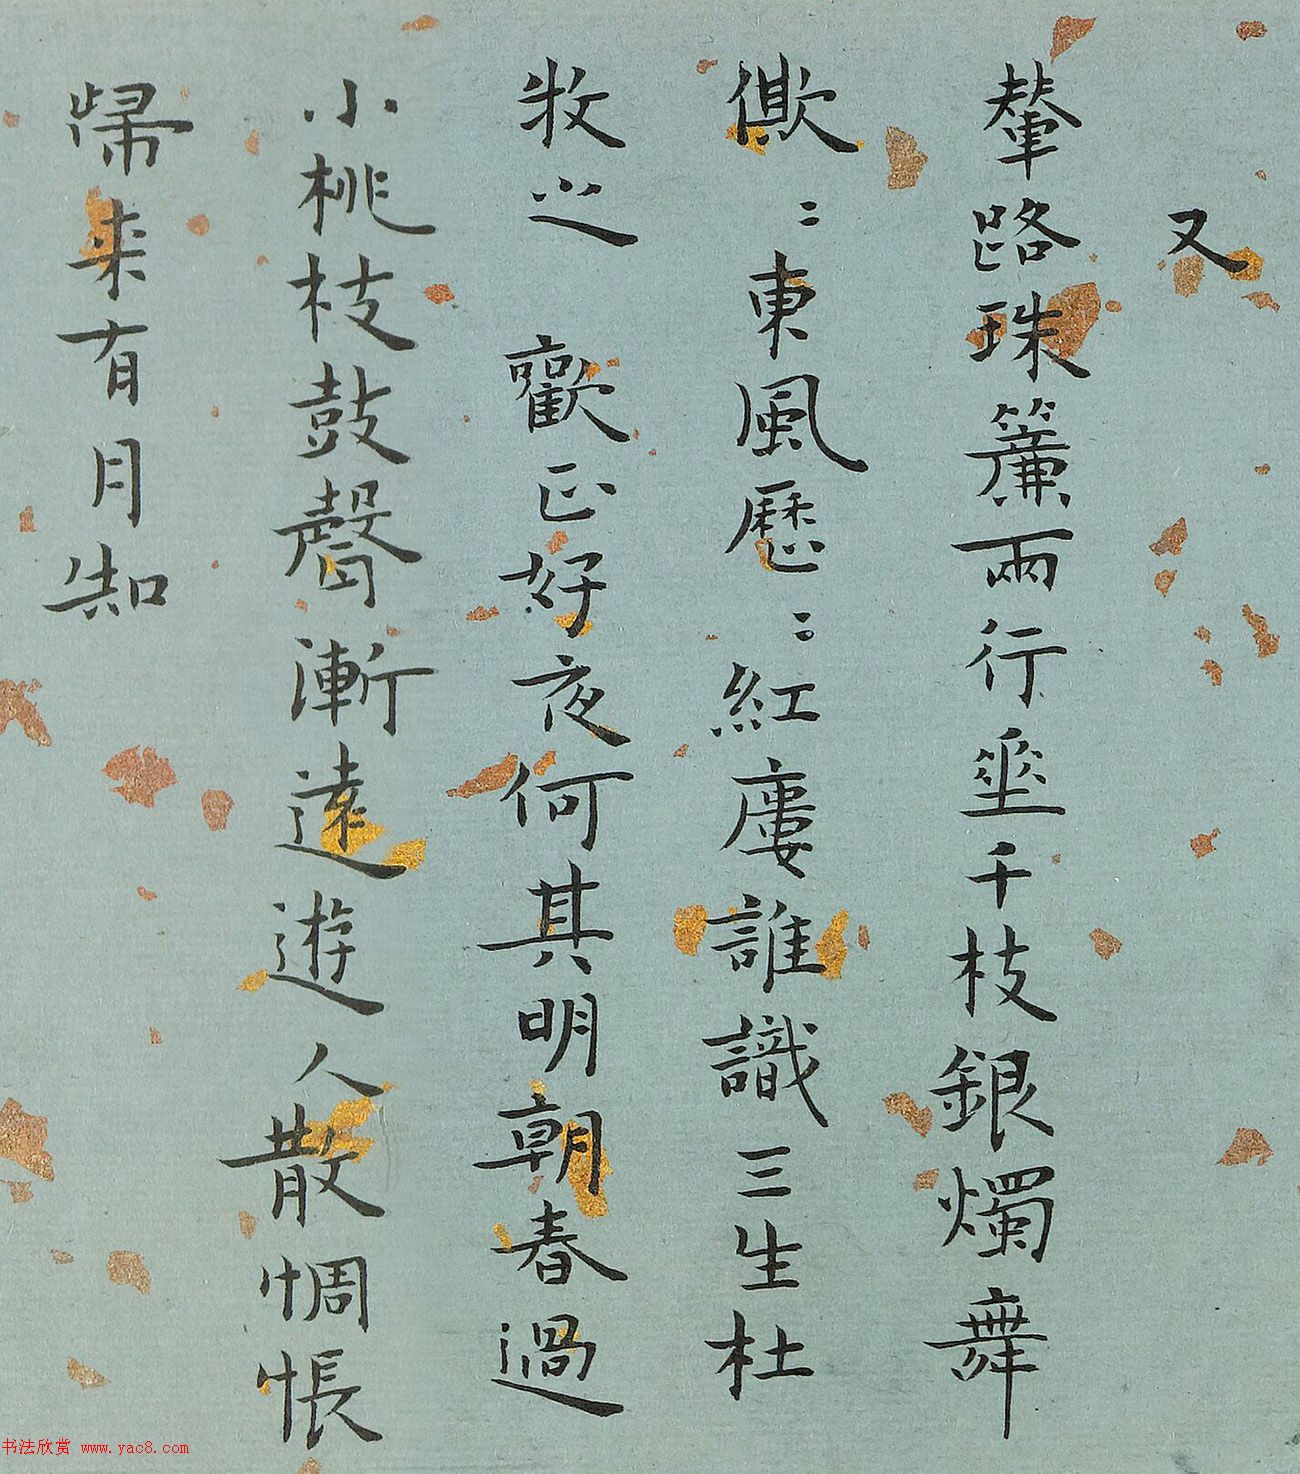 又
輦路珠簾兩行垂千枝銀燭舞
僛〻東風歷〻紅廔誰識三生杜
牧之　歡正好夜何其明朝春過
小桃枝鼓聲漸遠遊人散惆悵
歸来有月知
书法欣赏 www.yac8.com